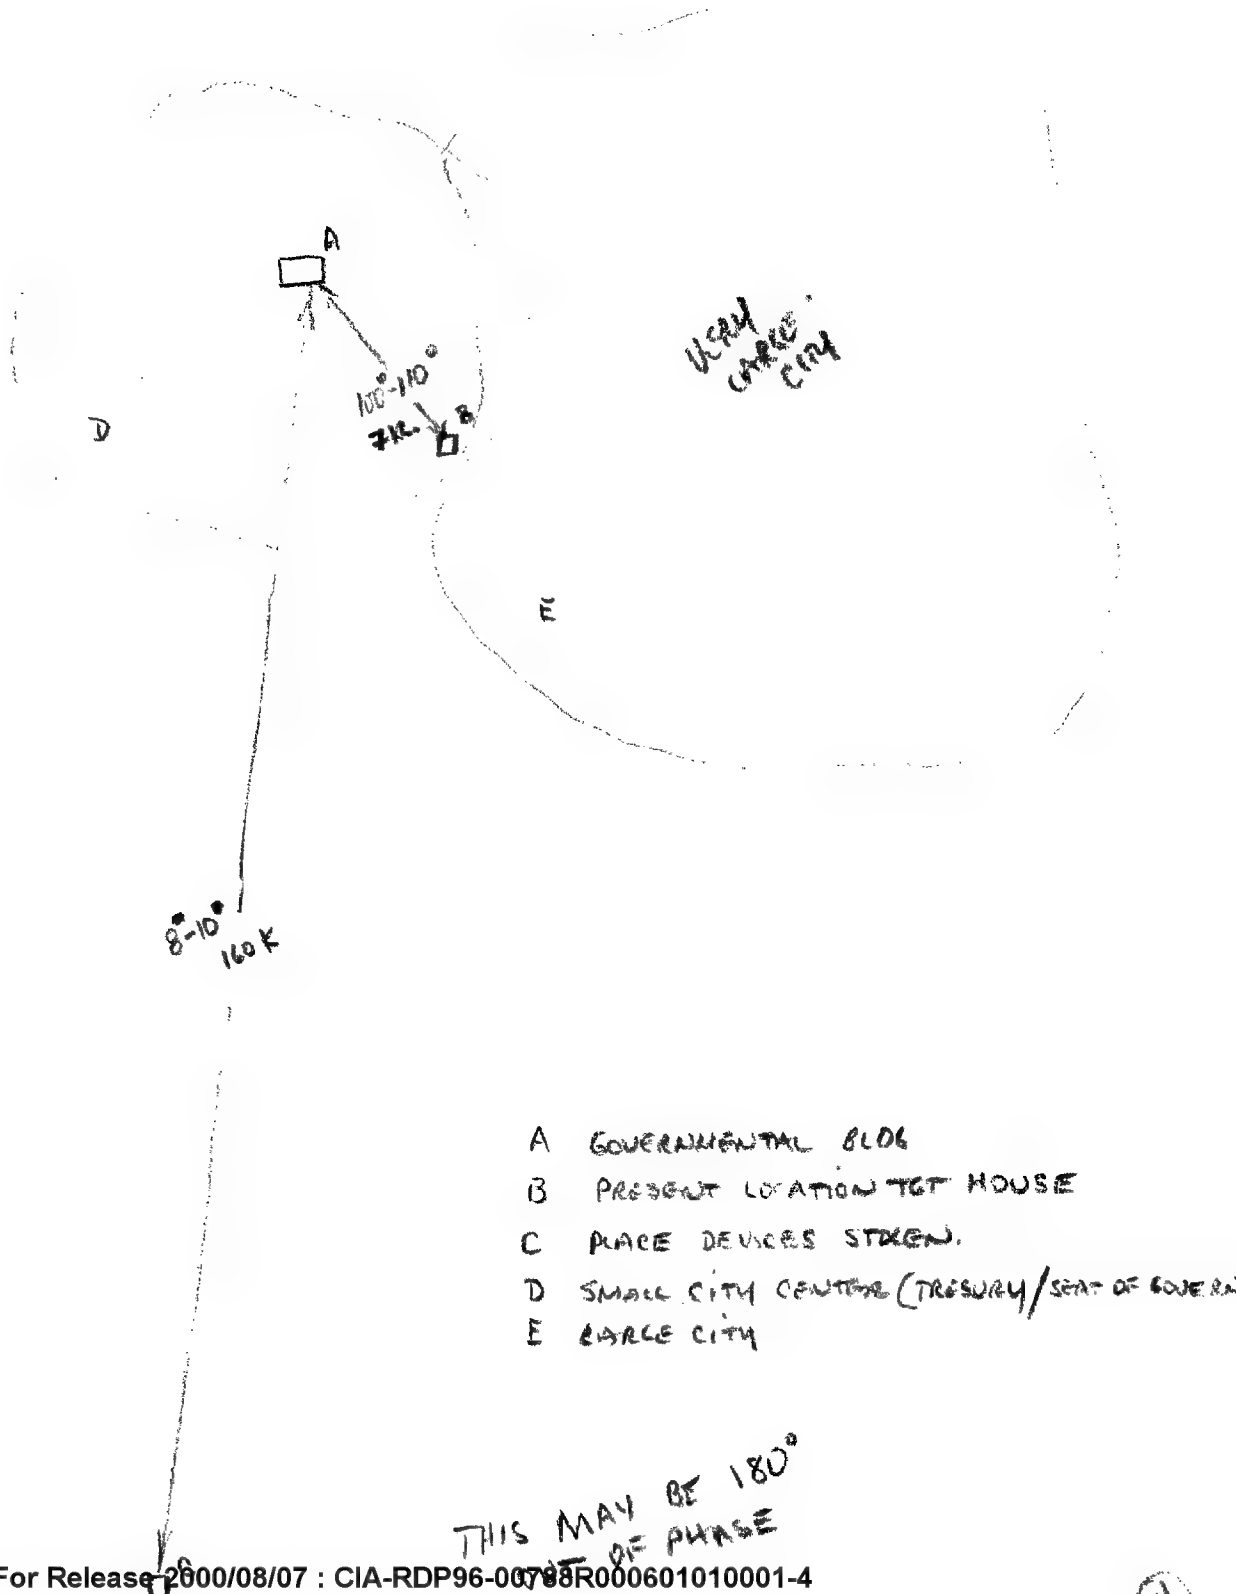 A
VERY
LARGE
CITY
100°-110°
7K.
B
D
E
8°-10°
160 K
A GOVERNMENTAL BLDG
B PRESENT LOCATION TGT HOUSE
C PLACE DEVICES STOLEN.
D SMALL CITY CENTER (TRESURY/SEAT OF GOVERN
E LARGE CITY
THIS MAY BE 180°
OUT OF PHASE
For Release 2000/08/07 : CIA-RDP96-00788R000601010001-4